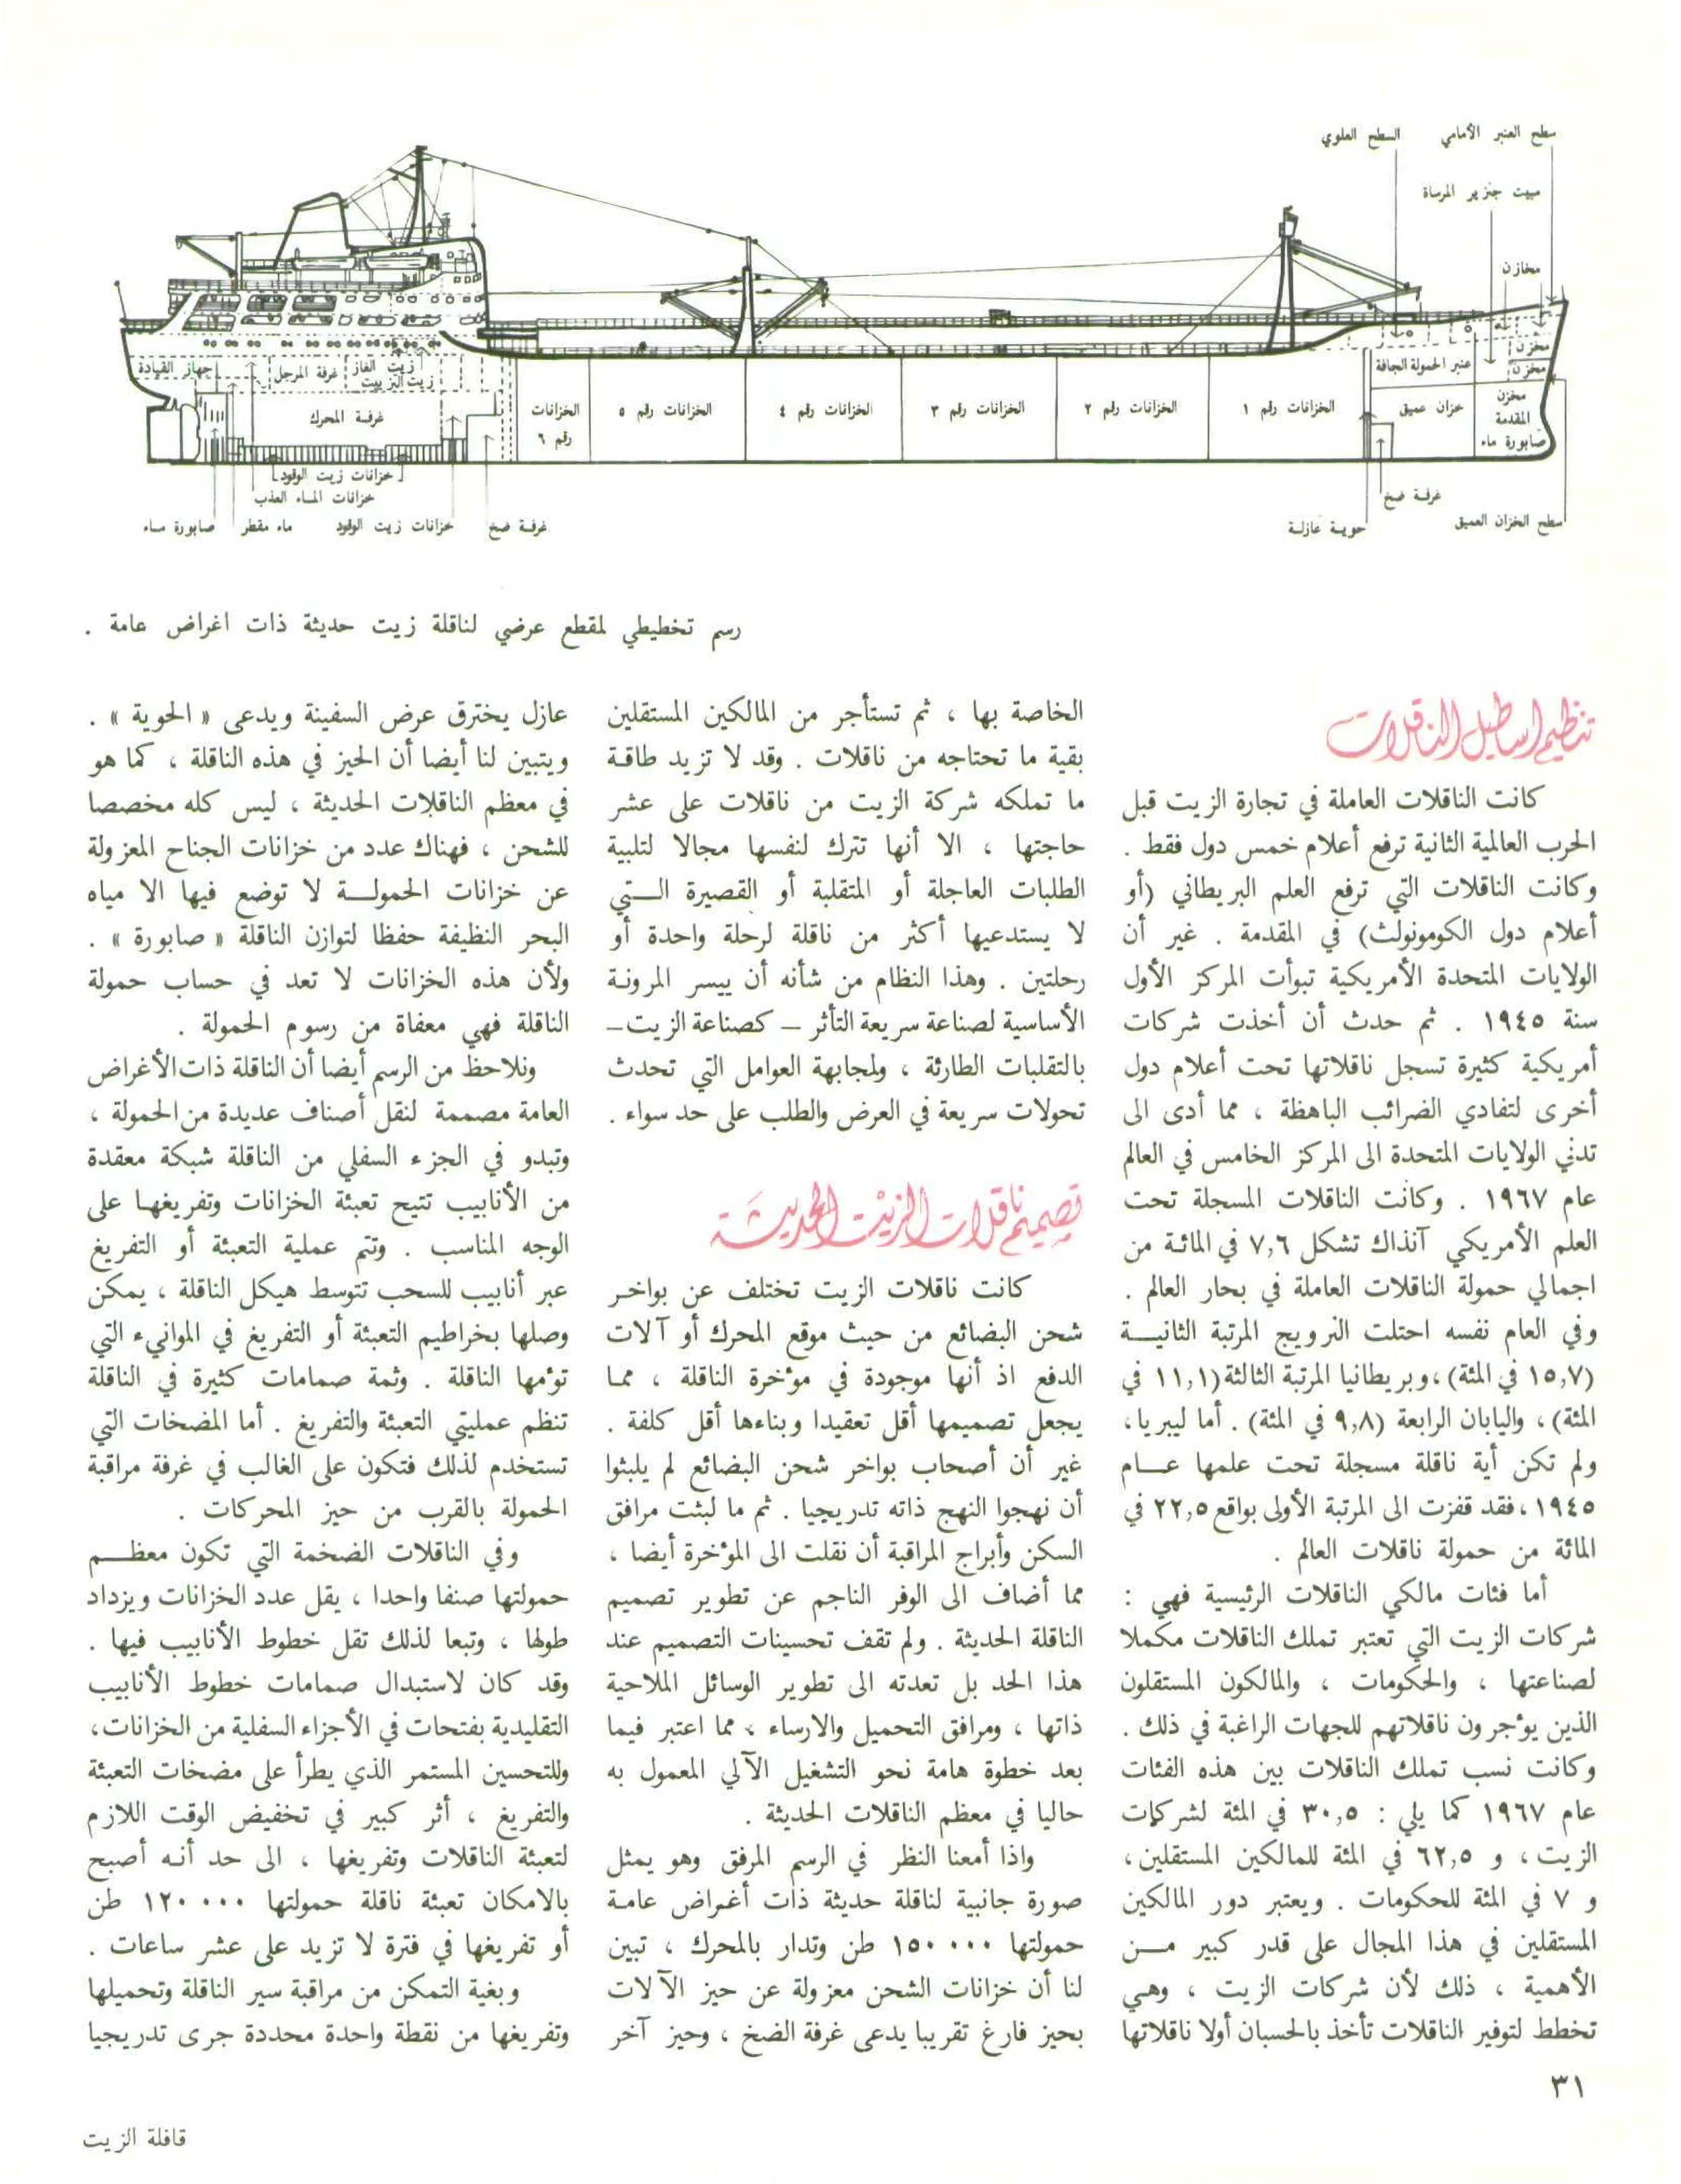 سطح العنبر الأمامي
السطح العلوي
مبيت جنزير المرساة
مخازن
مخزن
مخزن
جهاز القيادة
غرفة المرجل
زيت الغاز
زيت التزييت
عنبر الحمولة الجافة
غرفة المحرك
الخزانات رقم ٦
الخزانات رقم ٥
الخزانات رقم ٤
الخزانات رقم ٣
الخزانات رقم ٢
الخزانات رقم ١
خزان عميق
مخزن
المقدمة
صابورة ماء
خزانات زيت الوقود
خزانات الماء العذب
صابورة ماء
ماء مقطر
خزانات زيت الوقود
غرفة ضخ
غرفة ضخ
حوية عازلة
سطح الخزان العميق
رسم تخطيطي لمقطع عرضي لناقلة زيت حديثة ذات اغراض عامة .
تنظيم اساطيل الناقلات
كانت الناقلات العاملة في تجارة الزيت قبل
الحرب العالمية الثانية ترفع أعلام خمس دول فقط .
وكانت الناقلات التي ترفع العلم البريطاني (أو
أعلام دول الكومونولث) في المقدمة . غير أن
الولايات المتحدة الأمريكية تبوأت المركز الأول
سنة ١٩٤٥ . ثم حدث أن أخذت شركات
أمريكية كثيرة تسجل ناقلاتها تحت أعلام دول
أخرى لتفادي الضرائب الباهظة ، مما أدى الى
تدني الولايات المتحدة الى المركز الخامس في العالم
عام ١٩٦٧ . وكانت الناقلات المسجلة تحت
العلم الأمريكي آنذاك تشكل ٧,٦ في المائة من
اجمالي حمولة الناقلات العاملة في بحار العالم .
وفي العام نفسه احتلت النرويج المرتبة الثانيـــة
(١٥,٧ في المئة) ، وبريطانيا المرتبة الثالثة (١١,١ في
المئة) ، واليابان الرابعة (٩,٨ في المئة) . أما ليبريا ،
ولم تكن أية ناقلة مسجلة تحت علمها عـــام
١٩٤٥ ، فقد قفزت الى المرتبة الأولى بواقع ٢٢,٥ في
المائة من حمولة ناقلات العالم .
أما فئات مالكي الناقلات الرئيسية فهي :
شركات الزيت التي تعتبر تملك الناقلات مكملا
لصناعتها ، والحكومات ، والمالكون المستقلون
الذين يؤجرون ناقلاتهم للجهات الراغبة في ذلك .
وكانت نسب تملك الناقلات بين هذه الفئات
عام ١٩٦٧ كما يلي : ٣٠,٥ في المئة لشركات
الزيت ، و ٦٢,٥ في المئة للمالكين المستقلين ،
و ٧ في المئة للحكومات . ويعتبر دور المالكين
المستقلين في هذا المجال على قدر كبير مـــن
الأهمية ، ذلك لأن شركات الزيت ، وهي
تخطط لتوفير الناقلات تأخذ بالحسبان أولا ناقلاتها
الخاصة بها ، ثم تستأجر من المالكين المستقلين
بقية ما تحتاجه من ناقلات . وقد لا تزيد طاقة
ما تملكه شركة الزيت من ناقلات على عشر
حاجتها ، الا أنها تترك لنفسها مجالا لتلبية
الطلبات العاجلة أو المتقلبة أو القصيرة الـــتي
لا يستدعيها أكثر من ناقلة لرحلة واحدة أو
رحلتين . وهذا النظام من شأنه أن ييسر المرونة
الأساسية لصناعة سريعة التأثر – كصناعة الزيت –
بالتقلبات الطارئة ، ولمجابهة العوامل التي تحدث
تحولات سريعة في العرض والطلب على حد سواء .
تصميم ناقلات الزيت الحديثة
كانت ناقلات الزيت تختلف عن بواخر
شحن البضائع من حيث موقع المحرك أو آلات
الدفع اذ أنها موجودة في مؤخرة الناقلة ، مما
يجعل تصميمها أقل تعقيدا وبناءها أقل كلفة .
غير أن أصحاب بواخر شحن البضائع لم يلبثوا
أن نهجوا النهج ذاته تدريجيا . ثم ما لبثت مرافق
السكن وأبراج المراقبة أن نقلت الى المؤخرة أيضا ،
مما أضاف الى الوفر الناجم عن تطوير تصميم
الناقلة الحديثة . ولم تقف تحسينات التصميم عند
هذا الحد بل تعدته الى تطوير الوسائل الملاحية
ذاتها ، ومرافق التحميل والارساء ، مما اعتبر فيما
بعد خطوة هامة نحو التشغيل الآلي المعمول به
حاليا في معظم الناقلات الحديثة .
واذا أمعنا النظر في الرسم المرفق وهو يمثل
صورة جانبية لناقلة حديثة ذات أغراض عامة
حمولتها ١٥٠ ٠٠٠ طن وتدار بالمحرك ، تبين
لنا أن خزانات الشحن معزولة عن حيز الآلات
بحيز فارغ تقريبا يدعى غرفة الضخ ، وحيز آخر
عازل يخترق عرض السفينة ويدعى « الحوية » .
ويتبين لنا أيضا أن الحيز في هذه الناقلة ، كما هو
في معظم الناقلات الحديثة ، ليس كله مخصصا
للشحن ، فهناك عدد من خزانات الجناح المعزولة
عن خزانات الحمولـــة لا توضع فيها الا مياه
البحر النظيفة حفظا لتوازن الناقلة « صابورة » .
ولأن هذه الخزانات لا تعد في حساب حمولة
الناقلة فهي معفاة من رسوم الحمولة .
ونلاحظ من الرسم أيضا أن الناقلة ذات الأغراض
العامة مصممة لنقل أصناف عديدة من الحمولة ،
وتبدو في الجزء السفلي من الناقلة شبكة معقدة
من الأنابيب تتيح تعبئة الخزانات وتفريغها على
الوجه المناسب . وتتم عملية التعبئة أو التفريغ
عبر أنابيب للسحب تتوسط هيكل الناقلة ، يمكن
وصلها بخراطيم التعبئة أو التفريغ في الموانيء التي
تؤمها الناقلة . وثمة صمامات كثيرة في الناقلة
تنظم عمليتي التعبئة والتفريغ . أما المضخات التي
تستخدم لذلك فتكون على الغالب في غرفة مراقبة
الحمولة بالقرب من حيز المحركات .
وفي الناقلات الضخمة التي تكون معظـــم
حمولتها صنفا واحدا ، يقل عدد الخزانات ويزداد
طولها ، وتبعا لذلك تقل خطوط الأنابيب فيها .
وقد كان لاستبدال صمامات خطوط الأنابيب
التقليدية بفتحات في الأجزاء السفلية من الخزانات ،
وللتحسين المستمر الذي يطرأ على مضخات التعبئة
والتفريغ ، أثر كبير في تخفيض الوقت اللازم
لتعبئة الناقلات وتفريغها ، الى حد أنه أصبح
بالامكان تعبئة ناقلة حمولتها ١٢٠ ٠٠٠ طن
أو تفريغها في فترة لا تزيد على عشر ساعات .
وبغية التمكن من مراقبة سير الناقلة وتحميلها
وتفريغها من نقطة واحدة محددة جرى تدريجيا
٣١
قافلة الزيت